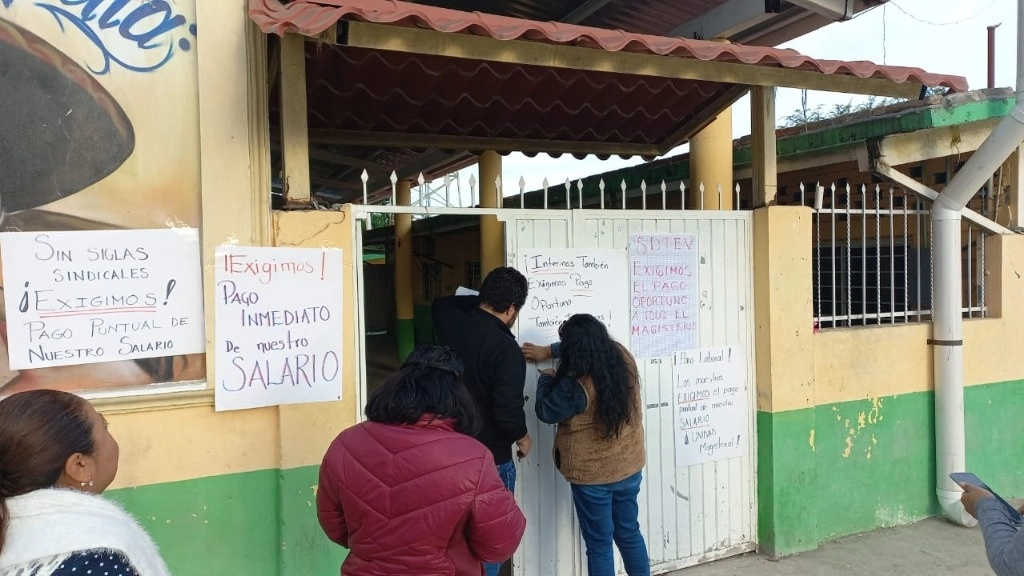 SIN SIGLAS
SINDICALES
¡EXIGIMOS!
PAGO PUNTUAL DE
NUESTRO SALARIO
¡Exigimos!
PAGO
INMEDIATO
De nuestro
SALARIO
¡Internos También
Exigimos Pago
Oportuno
SDTEV
EXIGIMOS
EL PAGO
OPORTUNO
A TODO EL
MAGISTERIO
¡Paro Laboral!
Los maestros
EXIGIMOS el pago
puntual de nuestro
SALARIO
¡UNIDAD
Magisterial!